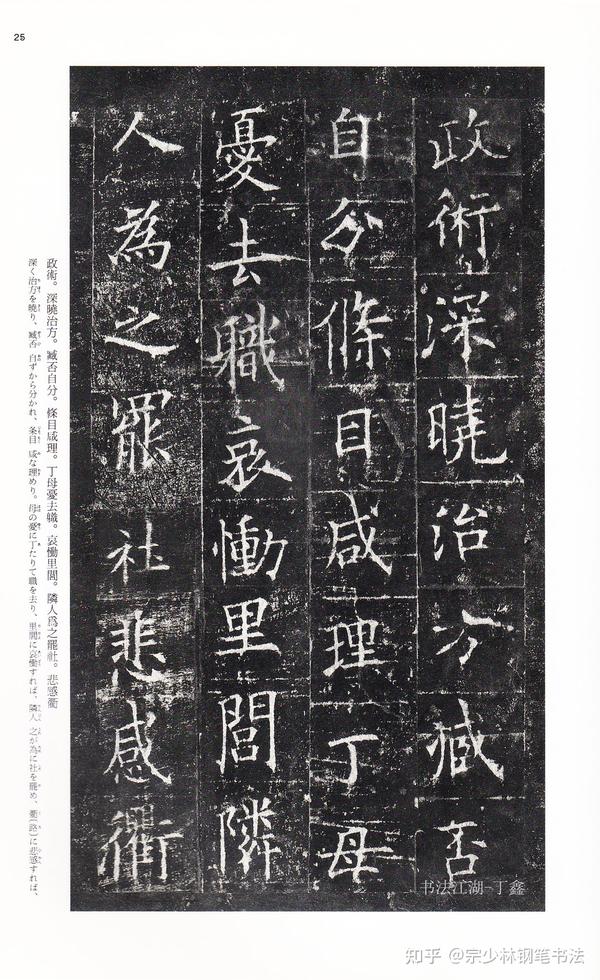 25
政術深曉治方臧否
自分條目咸理丁母
憂去職哀慟里閭隣
人為之罷社悲感衢
政術。深曉治方。臧否自分。條目咸理。丁母憂去職。哀慟里閭。隣人爲之罷社。悲感衢
深く治方を曉り、臧否 自ずから分かれ、条目 咸な理めり。母の憂に丁たりて職を去り、里閭に哀慟すれば、隣人 之が為に社を罷め、衢(路)に悲感すれば、
书法江湖-丁鑫
知乎 @宗少林钢笔书法